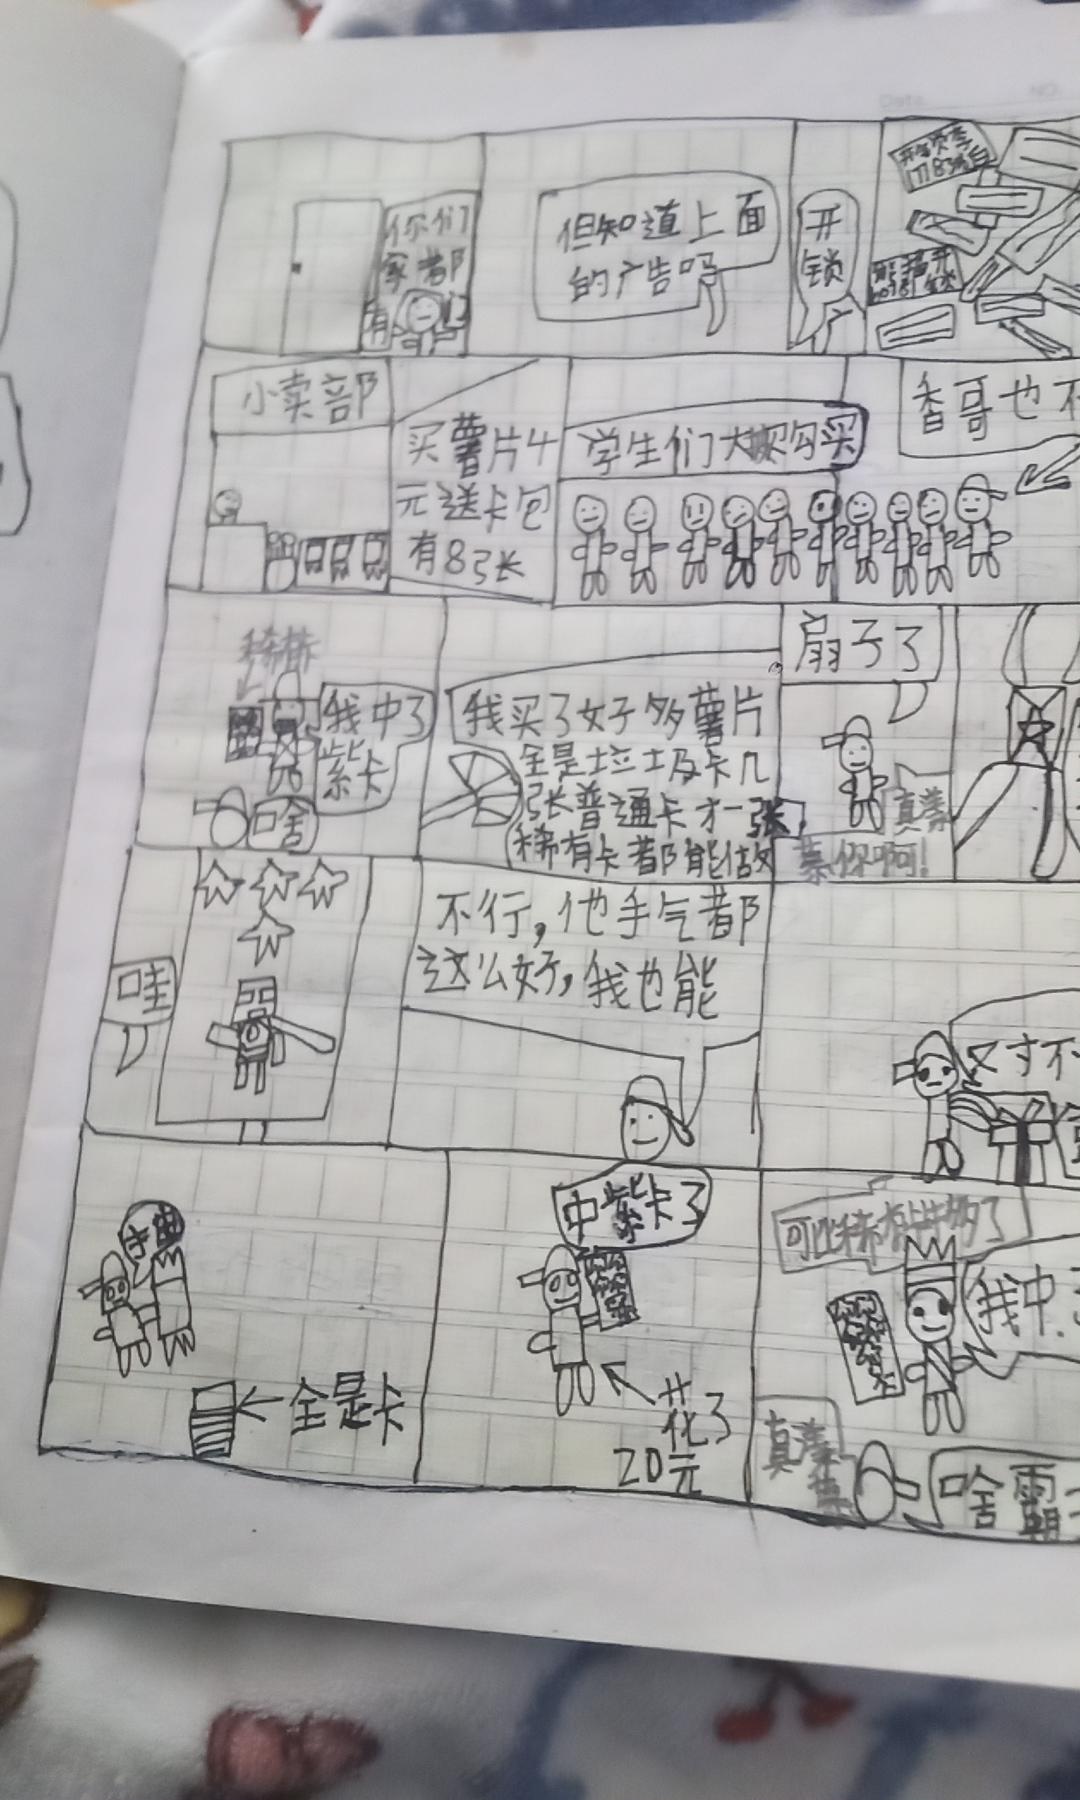 Date
NO.
你们
家都
有
但知道上面
的广告吗
开
锁
小卖部
买薯片4
元送卡包
有8张
学生们大概勾买
香哥也不
稀
我中了
紫卡
啥
我买了好多薯片
全是垃圾卡几
张普通卡才一张
稀有卡都能做
扇子了
真羡
慕你啊!
哇
不行,他手气都
这么好,我也能
又寸不
全是卡
中紫卡了
花了
20元
可比稀有卡牛多了
我中
真羡
慕
啥霸